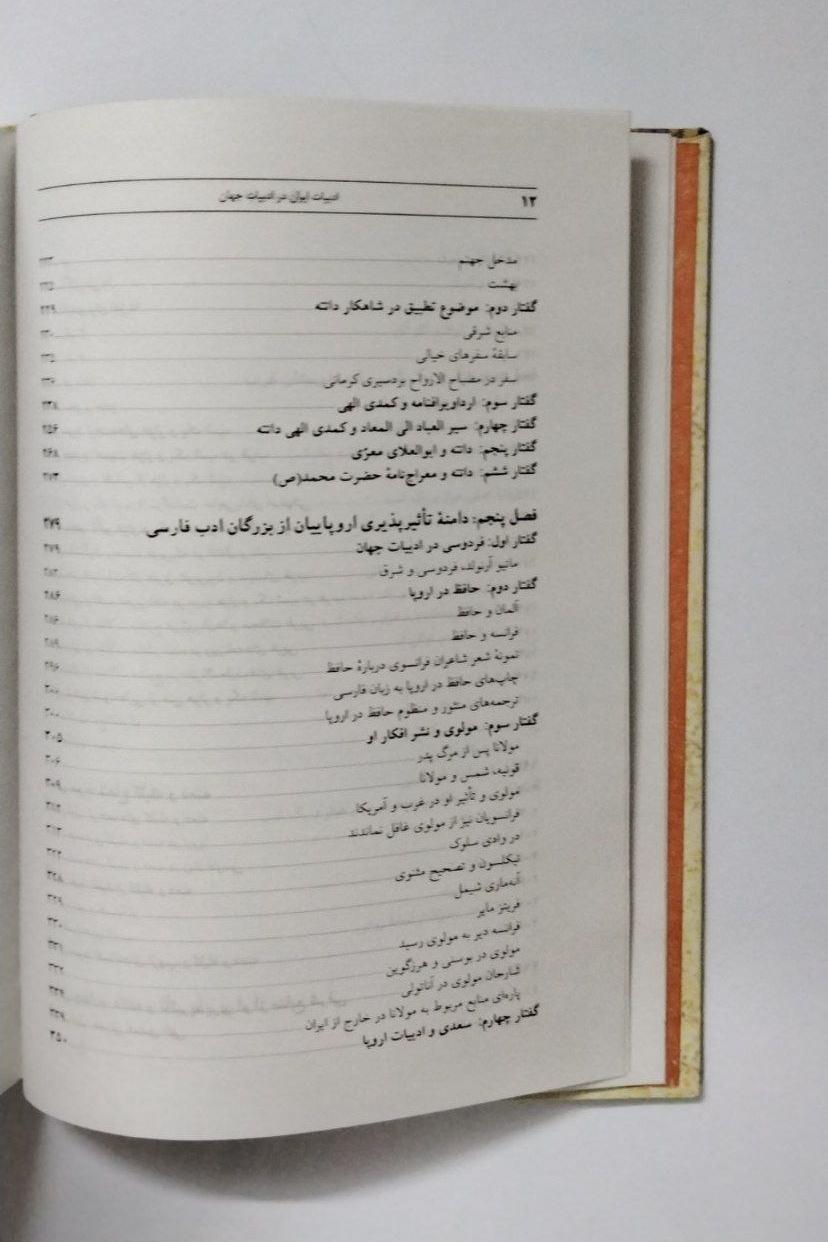 ۱۲ ادبیات ایران در ادبیات جهان
مدخل جهنم ۲۲۳
بهشت ۲۲۵
گفتار دوم: موضوع تطبیق در شاهکار دانته ۲۲۹
منابع شرقی ۲۳۰
سابقهٔ سفرهای خیالی ۲۳۵
سفر در مصباح الارواح بردسیری کرمانی ۲۳۶
گفتار سوم: ارداویرافنامه و کمدی الهی ۲۳۸
گفتار چهارم: سیر العباد الی المعاد و کمدی الهی دانته ۲۵۶
گفتار پنجم: دانته و ابوالعلای معرّی ۲۶۸
گفتار ششم: دانته و معراج‌نامهٔ حضرت محمد(ص) ۲۷۳
فصل پنجم: دامنهٔ تأثیرپذیری اروپاییان از بزرگان ادب فارسی ۲۷۹
گفتار اول: فردوسی در ادبیات جهان ۲۷۹
ماتیو آرنولد، فردوسی و شرق ۲۸۲
گفتار دوم: حافظ در اروپا ۲۸۶
آلمان و حافظ ۲۸۶
فرانسه و حافظ ۲۸۹
نمونهٔ شعر شاعران فرانسوی دربارهٔ حافظ ۲۹۶
چاپ‌های حافظ در اروپا به زبان فارسی ۳۰۰
ترجمه‌های منثور و منظوم حافظ در اروپا ۳۰۰
گفتار سوم: مولوی و نشر افکار او ۳۰۵
مولانا پس از مرگ پدر ۳۰۶
قونیه، شمس و مولانا ۳۰۹
مولوی و تأثیر او در غرب و آمریکا ۳۱۲
فرانسویان نیز از مولوی غافل نماندند ۳۱۳
در وادی سلوک ۳۲۲
نیکلسون و تصحیح مثنوی ۳۲۸
آنه‌ماری شیمل ۳۲۹
فریتز مایر ۳۳۰
فرانسه دیر به مولوی رسید ۳۳۱
مولوی در بوسنی و هرزگوین ۳۳۲
شارحان مولوی در آناتولی ۳۳۴
پاره‌ای منابع مربوط به مولانا در خارج از ایران ۳۳۹
گفتار چهارم: سعدی و ادبیات اروپا ۳۵۰